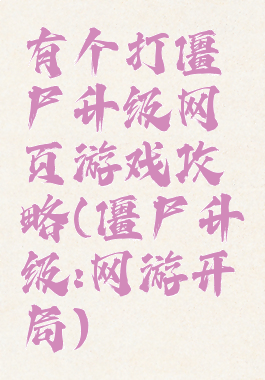 有个打僵
尸升级网
页游戏攻
略(僵尸升
级:网游开
局)